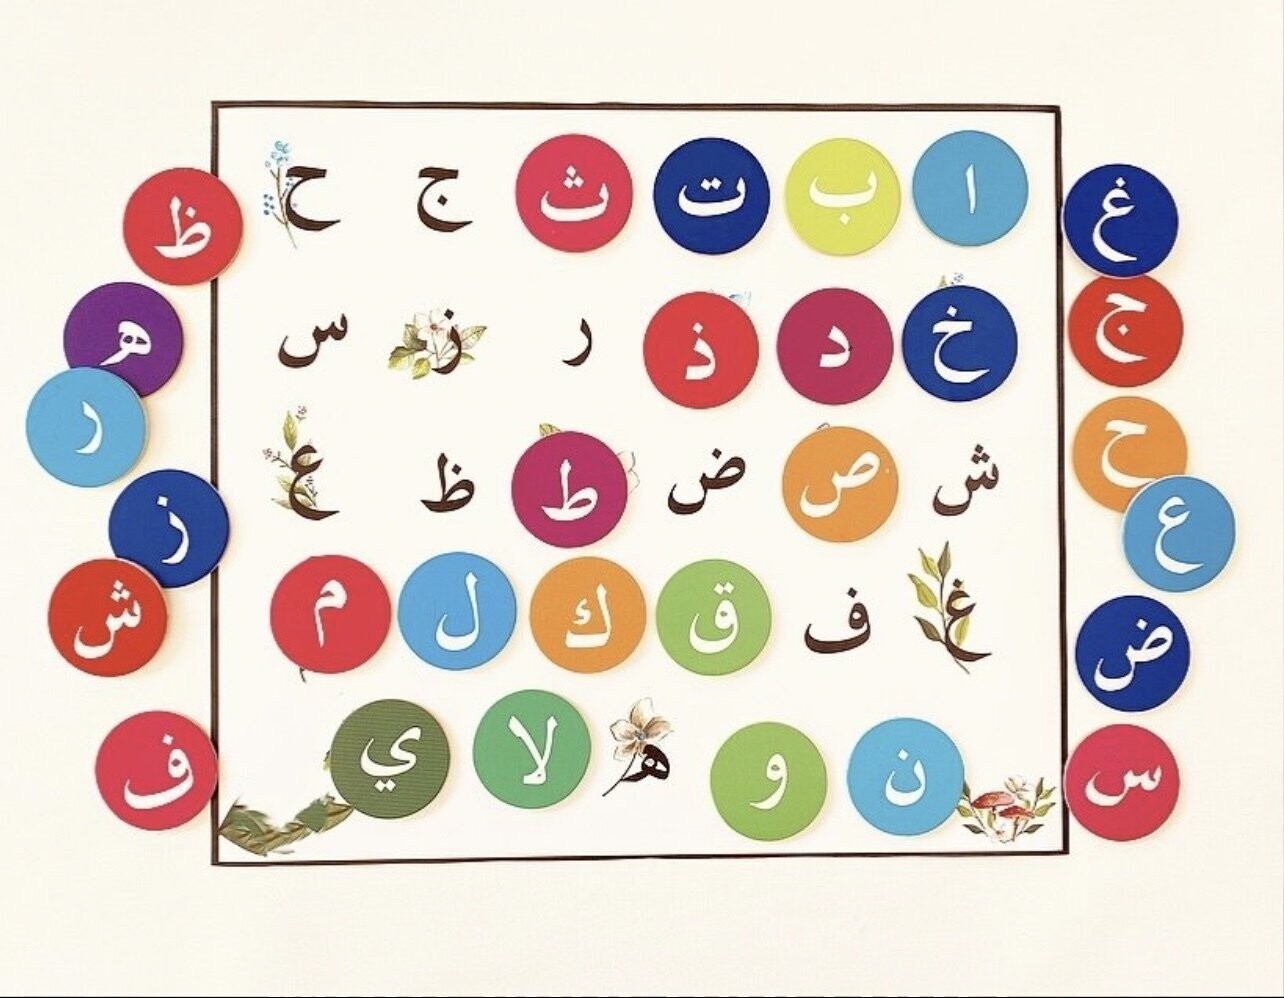 ا ب ت ث ج ح
خ د ذ ر ز س
ش ص ض ط ظ ع
غ ف ق ك ل م
ن و ه لا ي
غ
ج
ح
ع
ض
س
ظ
ه
ر
ز
ش
ف